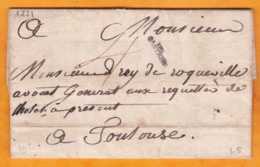 1731
A Monsieur
Monsieur de rey de roqueville
avocat General aux requetes de
a present
A Toulouse.